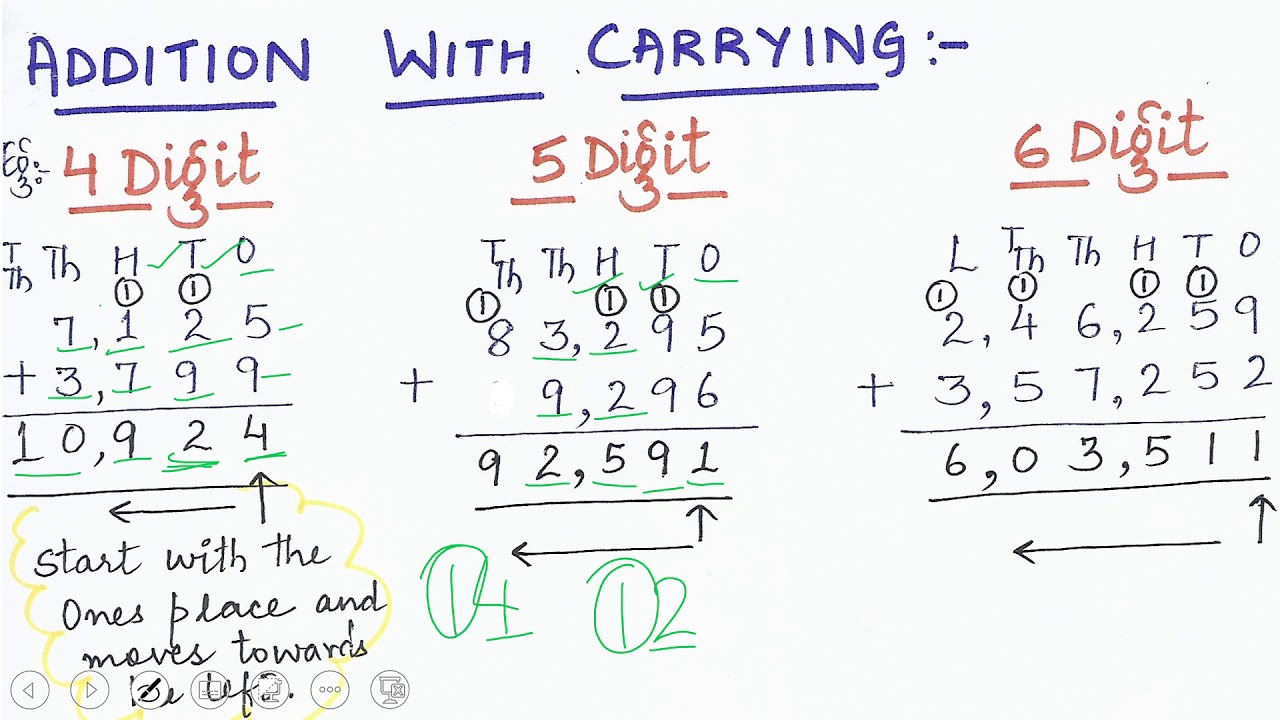 ADDITION WITH CARRYING:-
Eg:- 4 Digit
T Th Th H T O
① ①
7,1 2 5
+ 3,7 9 9
1 0,9 2 4
start with the
Ones place and
moves towards
the left.
5 Digit
T Th Th H T O
① ① ①
8 3,2 9 5
+ 9,2 9 6
9 2,5 9 1
①4 ①2
6 Digit
L T Th Th H T O
① ① ① ①
2,4 6,2 5 9
+ 3,5 7,2 5 2
6,0 3,5 1 1